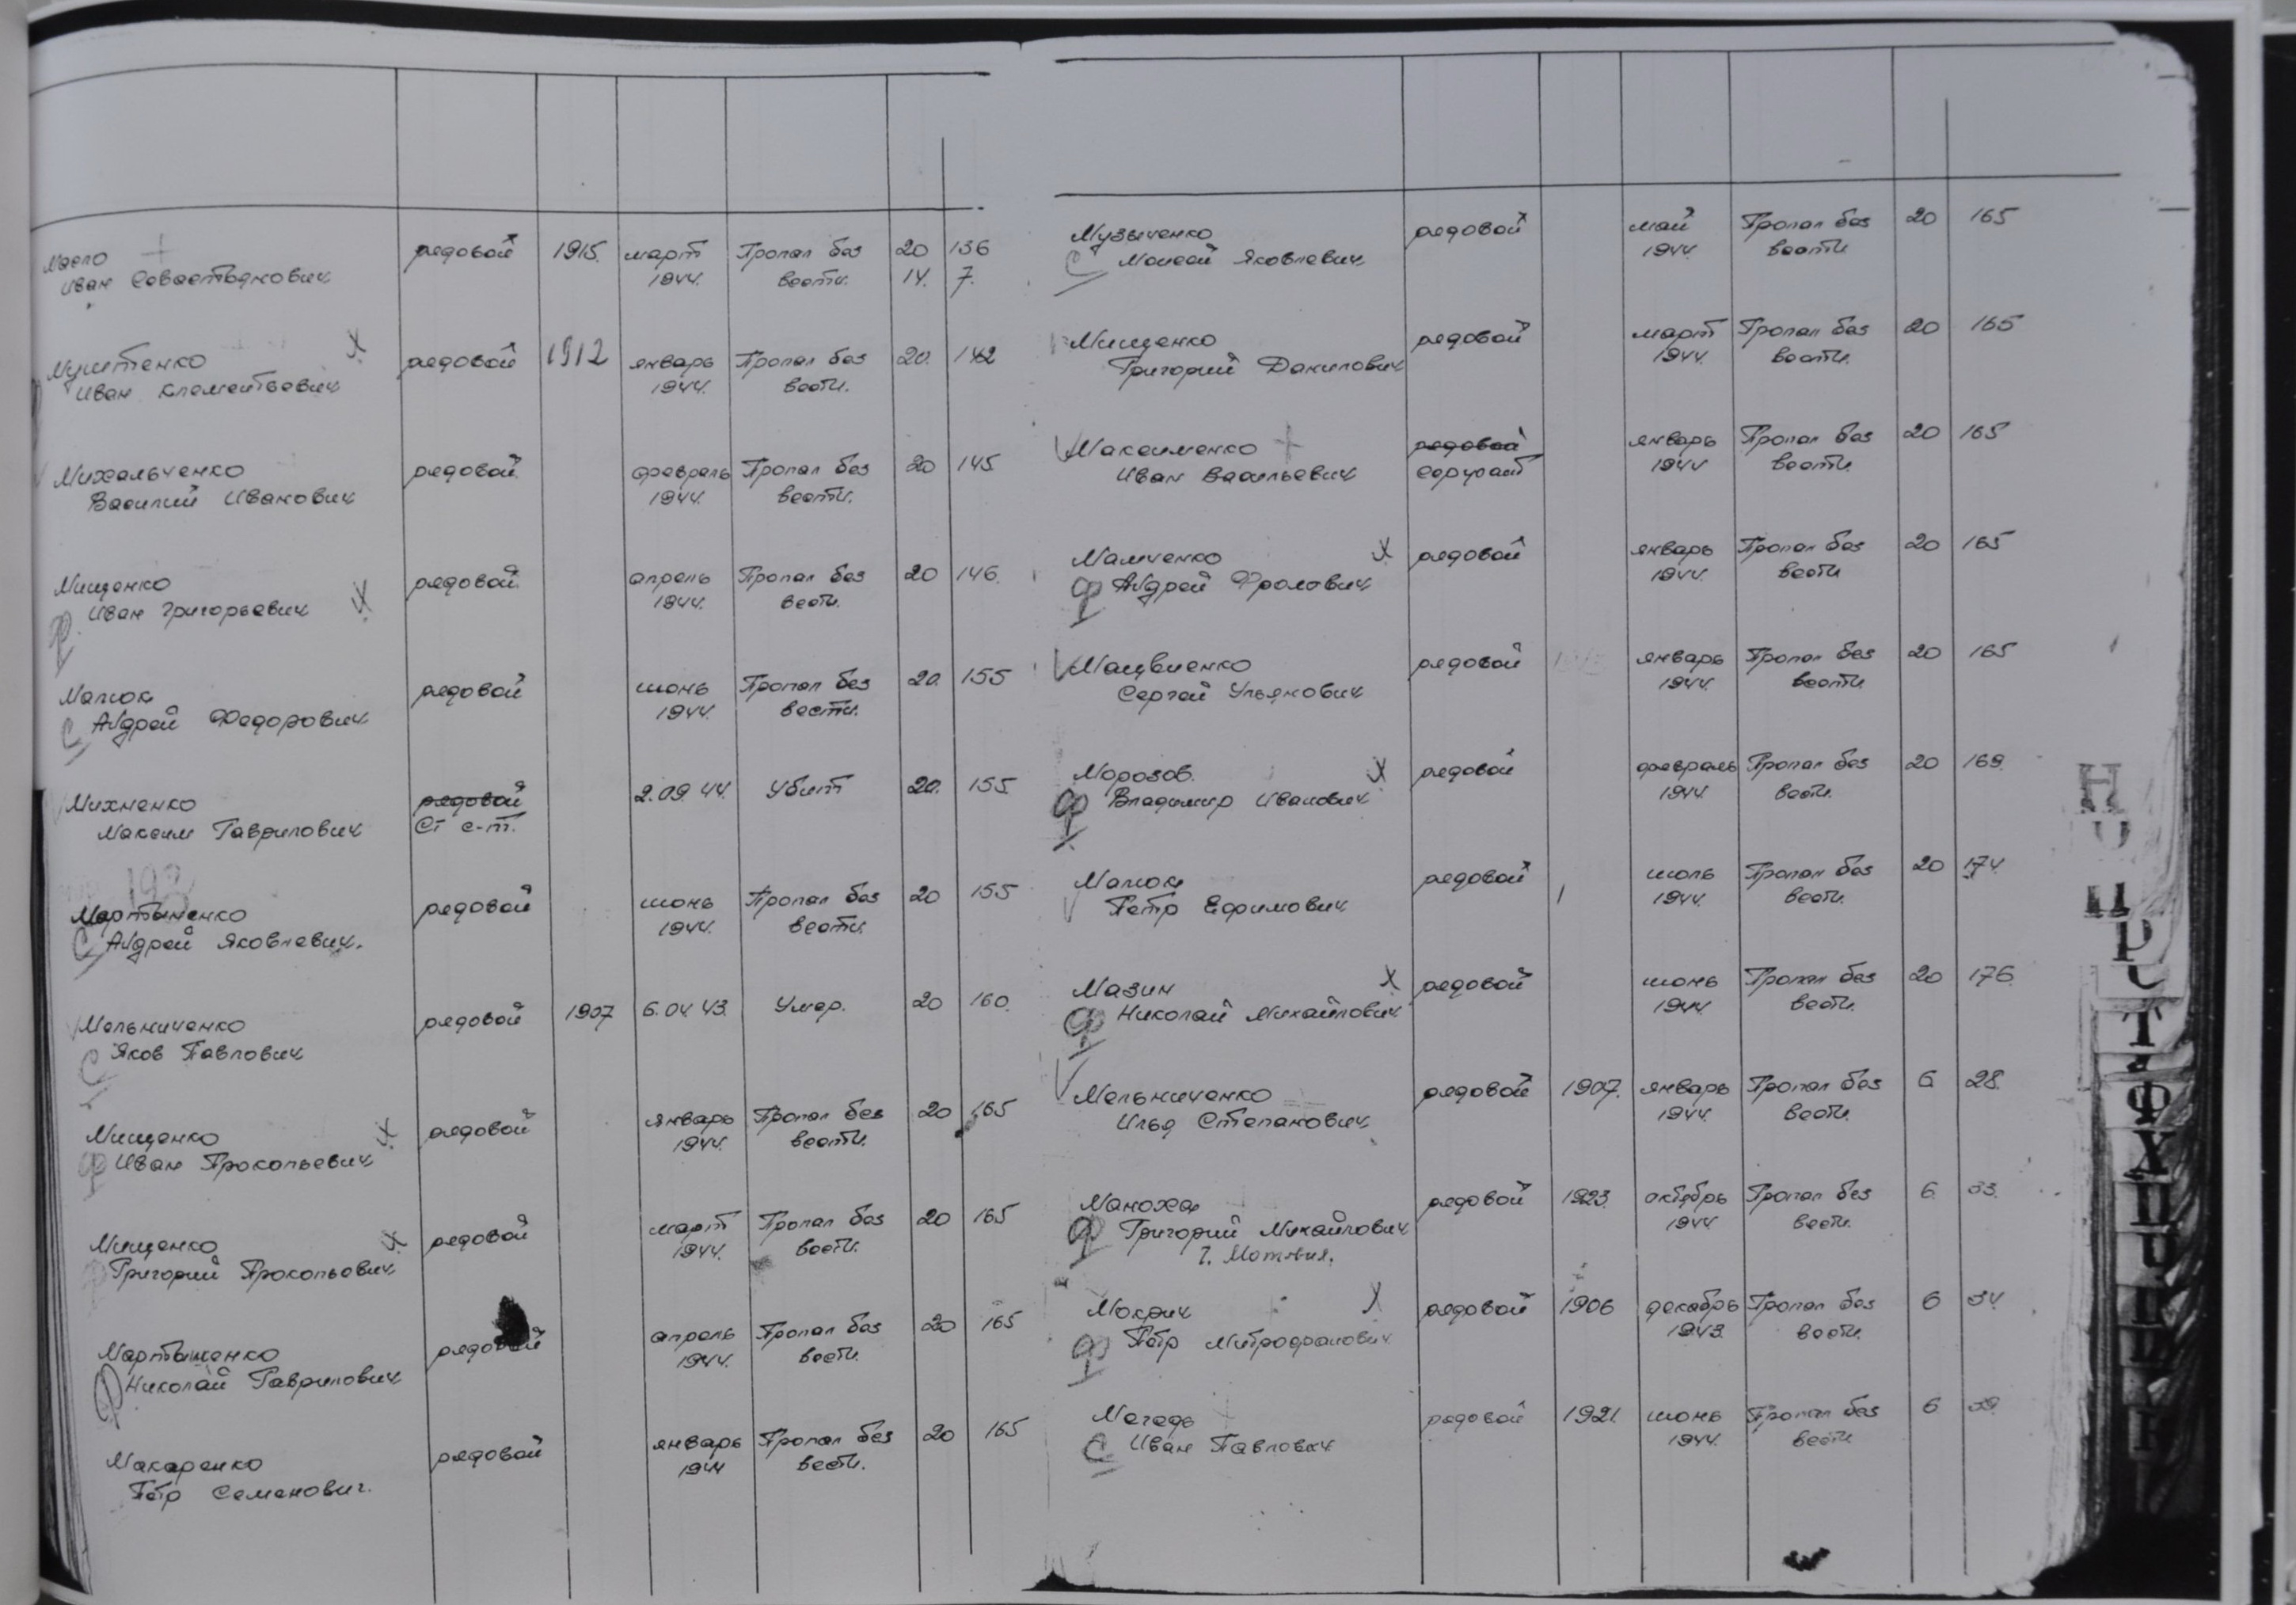 Масло рядовой 1915. март Пропал без 20 136
Иван Севастьянович 1944. вести. 14. 7.
Муштенко рядовой 1912 январь Пропал без 20. 142
Иван Клементьевич 1944. вести.
Михальченко рядовой февраль Пропал без 20 145
Василий Иванович 1944. вести.
Мищенко рядовой апрель Пропал без 20 146.
Ф Иван Григорьевич 1944. вести.
Малюк рядовой июнь Пропал без 20. 155
С Андрей Федорович 1944. вести.
Михненко рядовой 2.09.44. Убит 20. 155
Максим Гаврилович Ст с-т.
Мартыненко рядовой июнь Пропал без 20 155
С Андрей Яковлевич. 1944. вести.
Мельниченко рядовой 1907 6.04.43. Умер. 20 160.
С Яков Павлович
Мищенко рядовой январь Пропал без 20 165
Ф Иван Прокопьевич 1944. вести.
Мищенко рядовой март Пропал без 20 165
Григорий Прокопьевич 1944. вести.
Мартыненко рядовой апрель Пропал без 20 165
Ф Николай Гаврилович 1944. вести.
Макаренко рядовой январь Пропал без 20 165
Пётр Семенович. 1944 вести.
Музыченко рядовой май Пропал без 20 165
С Моисей Яковлевич 1944. вести.
Мищенко рядовой март Пропал без 20 165
Григорий Данилович 1944. вести.
Максименко рядовой январь Пропал без 20 165
Иван Васильевич сержант 1944 вести.
Мамченко рядовой январь Пропал без 20 165
Ф Андрей Фролович 1944. вести
Мацвиенко рядовой январь Пропал без 20 165
Сергей Ульянович 1944. вести
Морозов. рядовой февраль Пропал без 20 169.
Ф Владимир Иванович 1944. вести.
Малюк рядовой июль Пропал без 20 174.
Петр Ефимович 1944. вести.
Мазин рядовой июнь Пропал без 20 176.
Ф Николай Михайлович 1944. вести.
Мельниченко рядовой 1907. январь Пропал без 6 28.
Илья Степанович 1944. вести.
Маноха рядовой 1923. октябрь Пропал без 6. 33.
Ф Григорий Михайлович 1944 вести.
Мокрич рядовой 1906 декабрь Пропал без 6 34.
Ф Пётр Митрофанович 1943. вести.
Мегедь рядовой 1921. июнь Пропал без 6 39.
С Иван Павлович 1944. вести
Н
О
П
Р
С
Т
У
Ф
Х
Ц